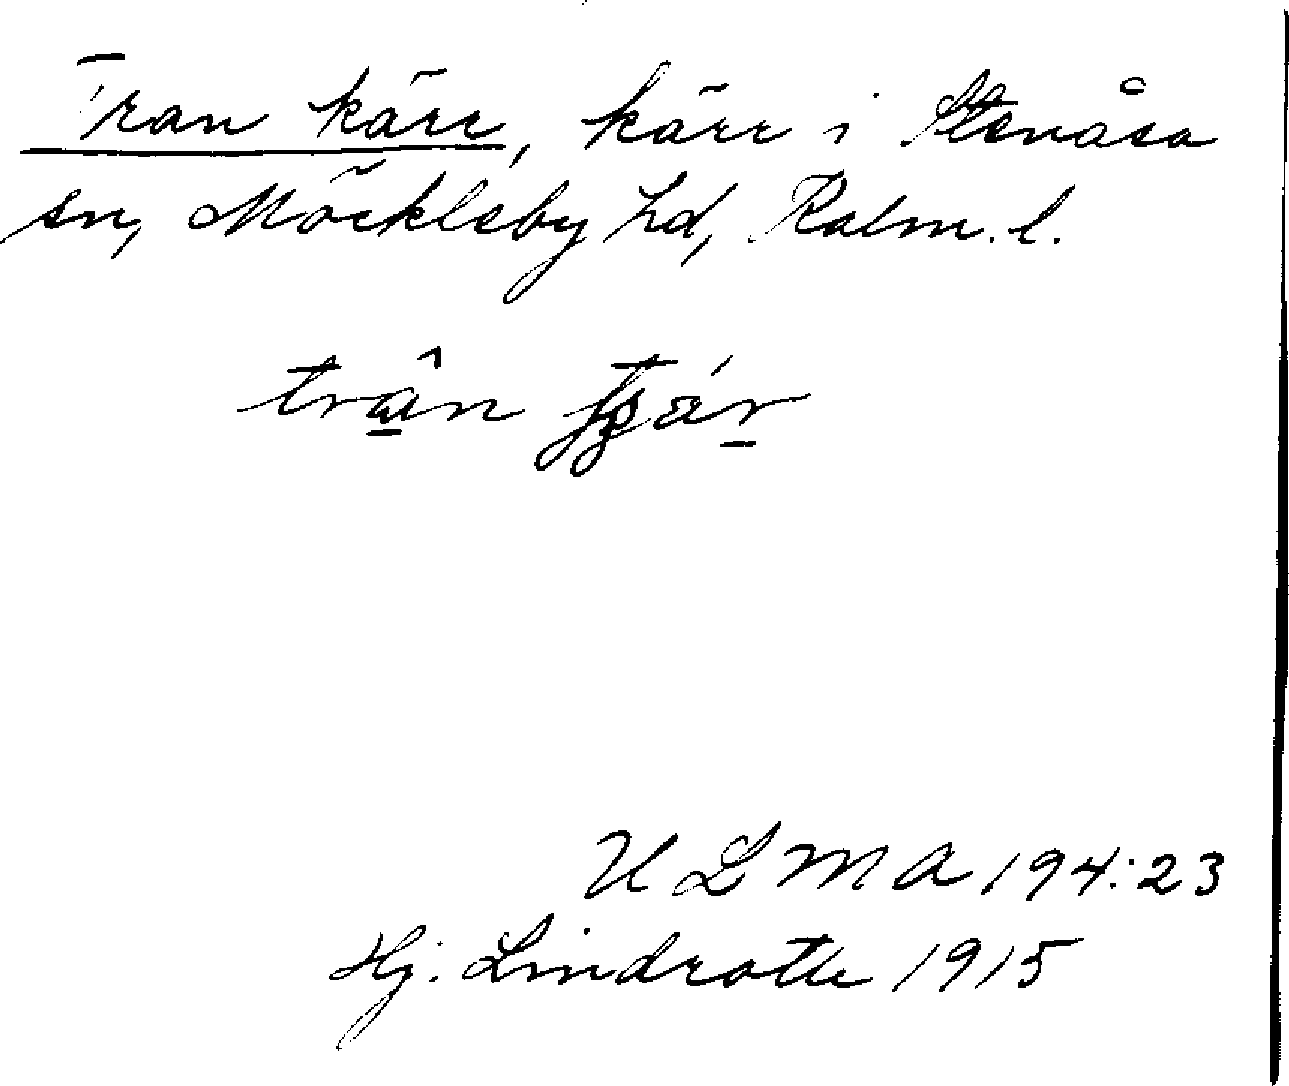 Tran kärr, kärr i Stenåsa
sn, Möckleby hd, Kalm. l.
trân
U L M A 194:23
Hj. Lindroth 1915